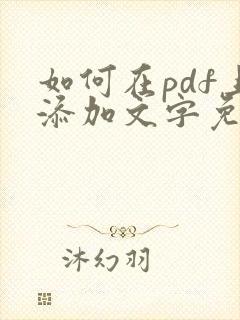 如何在pdf上
添加文字免
沐幻羽